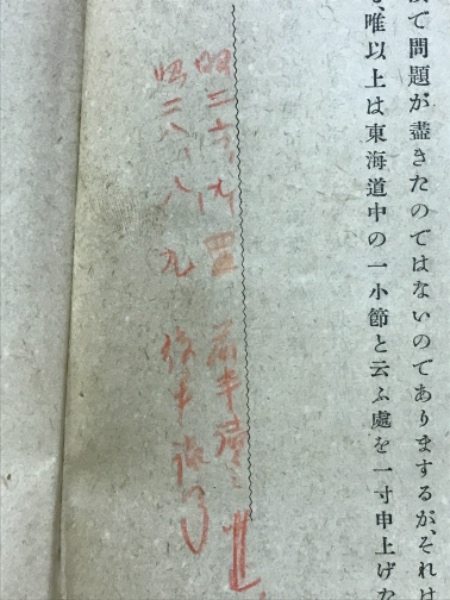 で問題が盡きたのではないのでありまするが、それは
唯以上は東海道中の一小節と云ふ處を一寸申上げた
昭二六、八、四 前半讀
昭二八、八、九 後半讀了